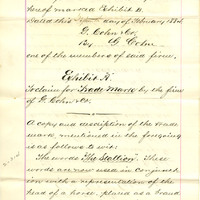 hereof marked Exhibit A
Dated this day of February 1886
G. Cohn & Co.
By G. Cohn
one of the members of said firm.
Exhibit A.
To claim for Trade Mark by the firm
of G. Cohn & Co.
A copy and description of the trade
mark mentioned in the foregoing
is as follows to wit:
The words "The Stallion". These
words are now used in conjunc-
tion with a representation of the
head of a horse, placed as a brand